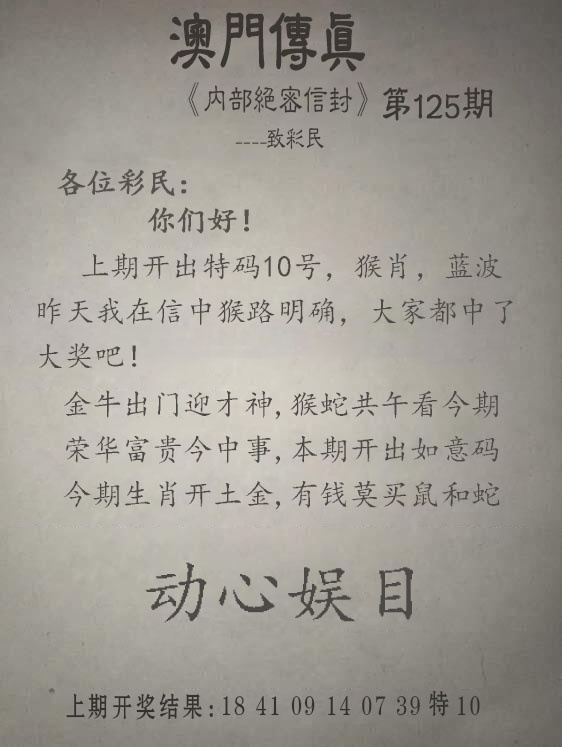 澳門傳真
《内部絕密信封》第125期
----致彩民
各位彩民：
你们好！
上期开出特码10号，猴肖，蓝波
昨天我在信中猴路明确，大家都中了
大奖吧！
金牛出门迎才神,猴蛇共午看今期
荣华富贵今中事,本期开出如意码
今期生肖开土金,有钱莫买鼠和蛇
动心娱目
上期开奖结果:18 41 09 14 07 39 特10